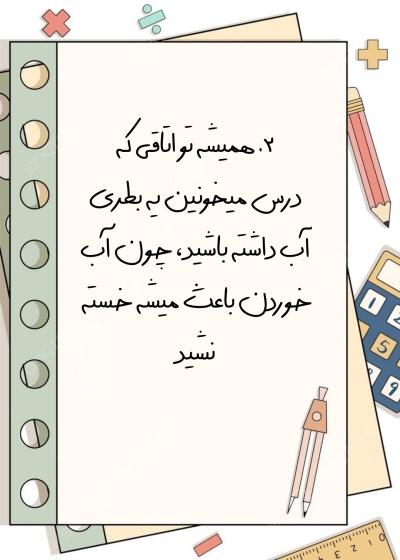 ۲. همیشه تو اتاقی که
درس میخونین یه بطری
آب داشته باشید، چون آب
خوردن باعث میشه خسته
نشید
1 2
5
8 9
1 2 3